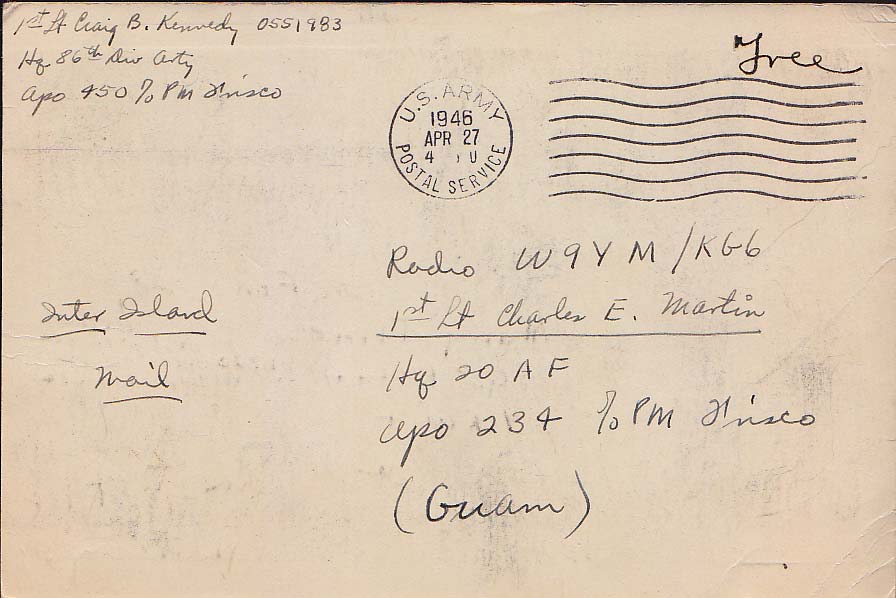 1st Lt Craig B. Kennedy 0551983
Hq 86th Div Arty
Apo 450 c/o PM Frisco
Free
U.S. ARMY
1946
APR 27
4 U
POSTAL SERVICE
Radio W9YM/KG6
1st Lt Charles E. Martin
Hq 20 AF
Apo 234 c/o PM Frisco
(Guam)
Inter Island
Mail